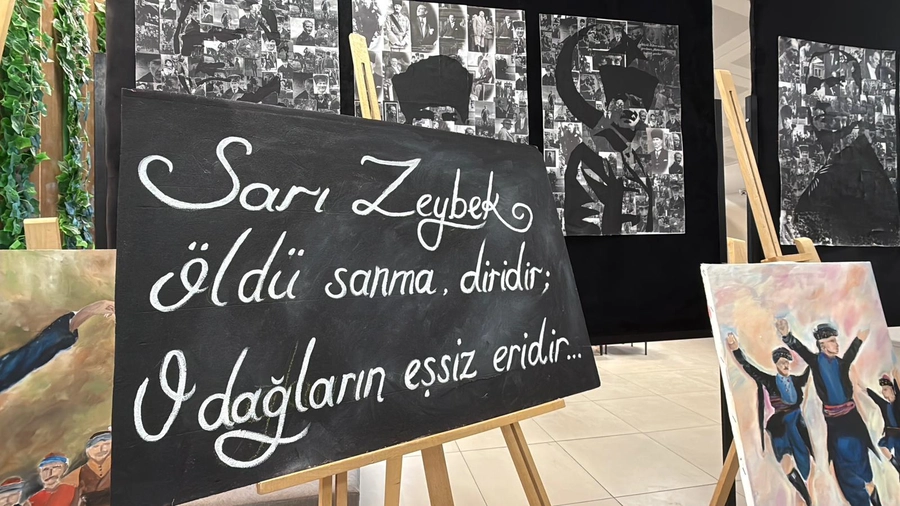 Sarı Zeybek
Öldü sanma, diridir;
O dağların eşsiz eridir...